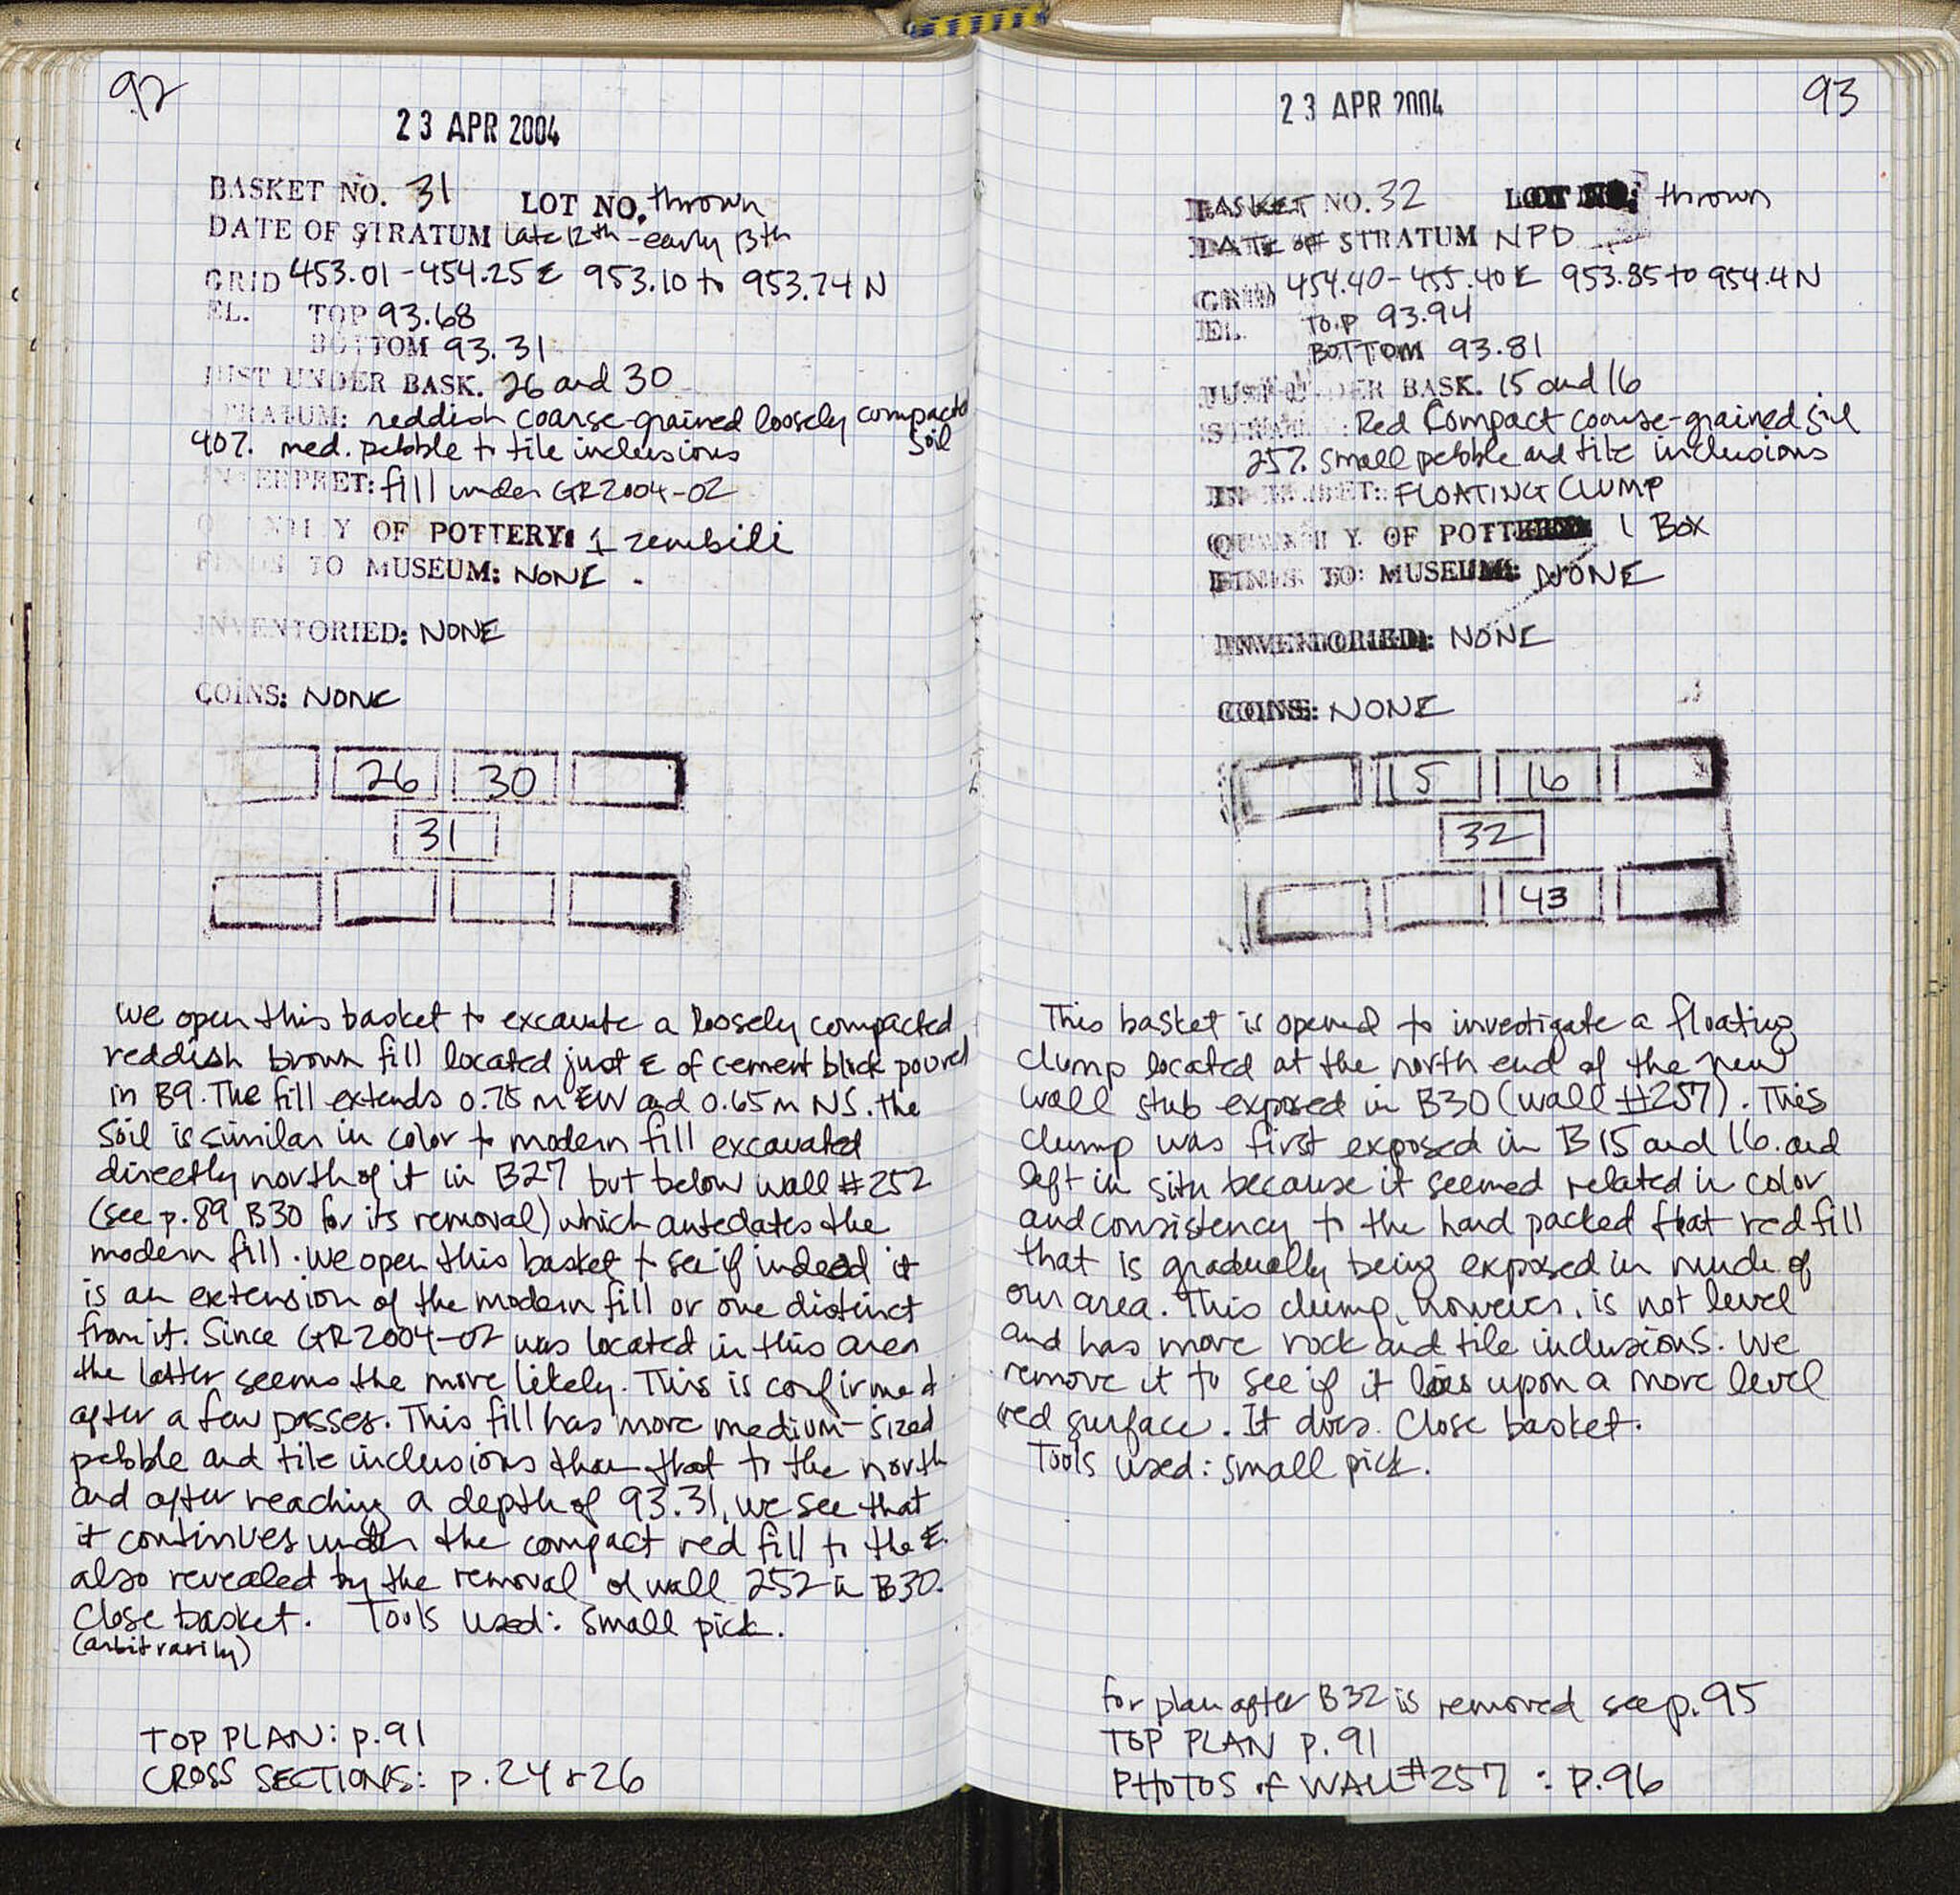 92
23 APR 2004
BASKET NO. 31 LOT NO. thrown
DATE OF STRATUM late 12th - early 13th
GRID 453.01 - 454.25 E 953.10 to 953.74 N
EL. TOP 93.68
BOTTOM 93.31
JUST UNDER BASK. 26 and 30
STRATUM: reddish coarse-grained loosely compacted soil
40% med. pebble to tile inclusions
INTERPRET: fill under GR2004-02
QUANTITY OF POTTERY: 1 zembili
FINDS TO MUSEUM: NONE.
INVENTORIED: NONE
COINS: NONE
26 30
31
We open this basket to excavate a loosely compacted
reddish brown fill located just E of cement block poured
in B9. The fill extends 0.75 m EW and 0.65 m NS. the
soil is similar in color to modern fill excavated
directly north of it in B27 but below wall #252
(see p. 89 B30 for its removal) which antedates the
modern fill. We open this basket to see if indeed it
is an extension of the modern fill or one distinct
from it. Since GR2004-02 was located in this area
the latter seems the more likely. This is confirmed
after a few passes. This fill has more medium-sized
pebble and tile inclusions than that to the north
and after reaching a depth of 93.31, we see that
it continues under the compact red fill to the E.
also revealed by the removal of wall 252 in B30.
Close basket. Tools used: small pick.
(arbitrarily)
TOP PLAN: p. 91
CROSS SECTIONS: p. 24 & 26
93
23 APR 2004
BASKET NO. 32 LOT NO: thrown
DATE OF STRATUM NPD
GRID 454.40 - 455.40 E 953.85 to 954.4 N
EL. TOP 93.94
BOTTOM 93.81
JUST UNDER BASK. 15 and 16
STRATUM: Red Compact coarse-grained soil
25% small pebble and tile inclusions
INTERPRET: FLOATING CLUMP
QUANTITY OF POTTERY: 1 BOX
FINDS TO MUSEUM: NONE
INVENTORIED: NONE
COINS: NONE
15 16
32
43
This basket is opened to investigate a floating
clump located at the north end of the new
wall stub exposed in B30 (wall #257). This
clump was first exposed in B15 and 16. and
left in situ because it seemed related in color
and consistency to the hard packed flat red fill
that is gradually being exposed in much of
our area. This clump, however, is not level
and has more rock and tile inclusions. We
remove it to see if it lies upon a more level
red surface. It does. Close basket.
Tools used: small pick.
for plan after B32 is removed see p. 95
TOP PLAN p. 91
PHOTOS of WALL #257 : P. 96